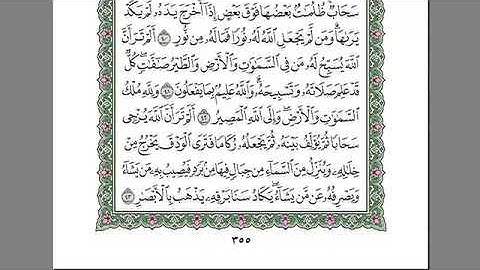 سَحَابٌ ظُلُمَٰتٌۢ بَعۡضُهَا فَوۡقَ بَعۡضٍ إِذَآ أَخۡرَجَ يَدَهُۥ لَمۡ يَكَدۡ
يَرَىٰهَاۗ وَمَن لَّمۡ يَجۡعَلِ ٱللَّهُ لَهُۥ نُورٗا فَمَا لَهُۥ مِن نُّورٍ ٤٠ أَلَمۡ تَرَ أَنَّ
ٱللَّهَ يُسَبِّحُ لَهُۥ مَن فِي ٱلسَّمَٰوَٰتِ وَٱلۡأَرۡضِ وَٱلطَّيۡرُ صَٰٓفَّٰتٖۖ كُلّٞ
قَدۡ عَلِمَ صَلَاتَهُۥ وَتَسۡبِيحَهُۥۗ وَٱللَّهُ عَلِيمُۢ بِمَا يَفۡعَلُونَ ٤١ وَلِلَّهِ مُلۡكُ
ٱلسَّمَٰوَٰتِ وَٱلۡأَرۡضِۖ وَإِلَى ٱللَّهِ ٱلۡمَصِيرُ ٤٢ أَلَمۡ تَرَ أَنَّ ٱللَّهَ يُزۡجِي
سَحَابٗا ثُمَّ يُؤَلِّفُ بَيۡنَهُۥ ثُمَّ يَجۡعَلُهُۥ رُكَامٗا فَتَرَى ٱلۡوَدۡقَ يَخۡرُجُ مِنۡ
خِلَٰلِهِۦ وَيُنَزِّلُ مِنَ ٱلسَّمَآءِ مِن جِبَالٖ فِيهَا مِنۢ بَرَدٖ فَيُصِيبُ بِهِۦ مَن يَشَآءُ
وَيَصۡرِفُهُۥ عَن مَّن يَشَآءُۖ يَكَادُ سَنَا بَرۡقِهِۦ يَذۡهَبُ بِٱلۡأَبۡصَٰرِ ٤٣
٣٥٥